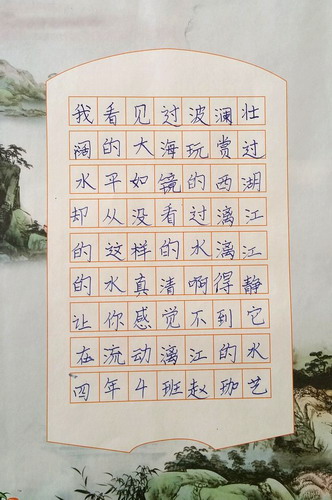 我看见过波澜壮
阔的大海玩赏过
水平如镜的西湖
却从没看过漓江
的这样的水漓江
的水真清啊得静
让你感觉不到它
在流动漓江的水
四年4班赵珈艺